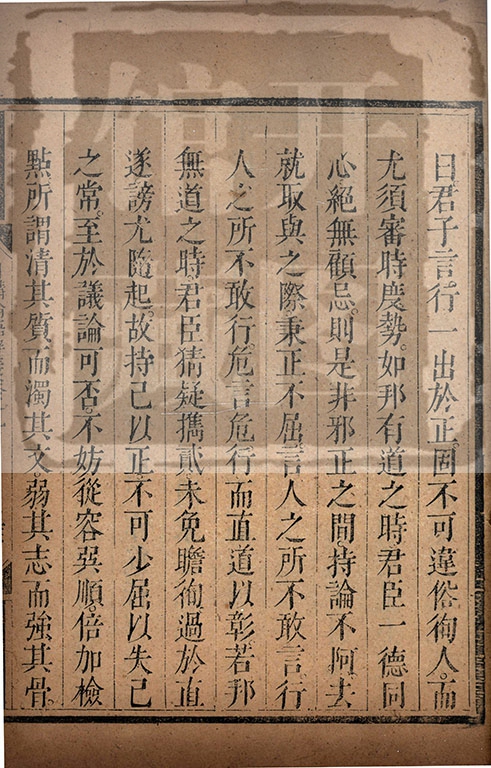 曰君子言行一出於正。固不可違俗徇人。而
尤須審時度勢。如邦有道之時君臣一德同
心絕無顧忌。則是非邪正之間持論不阿。去
就取與之際。秉正不屈。言人之所不敢言。行
人之所不敢行。危言危行而直道以彰。若邦
無道之時君臣猜疑攜貳。未免瞻徇。過於直
遂謗尤隨起。故持己以正不可少屈以失己
之常。至於議論可否。不妨從容巽順。倍加檢
點所謂清其質而濁其文弱其志而強其骨。